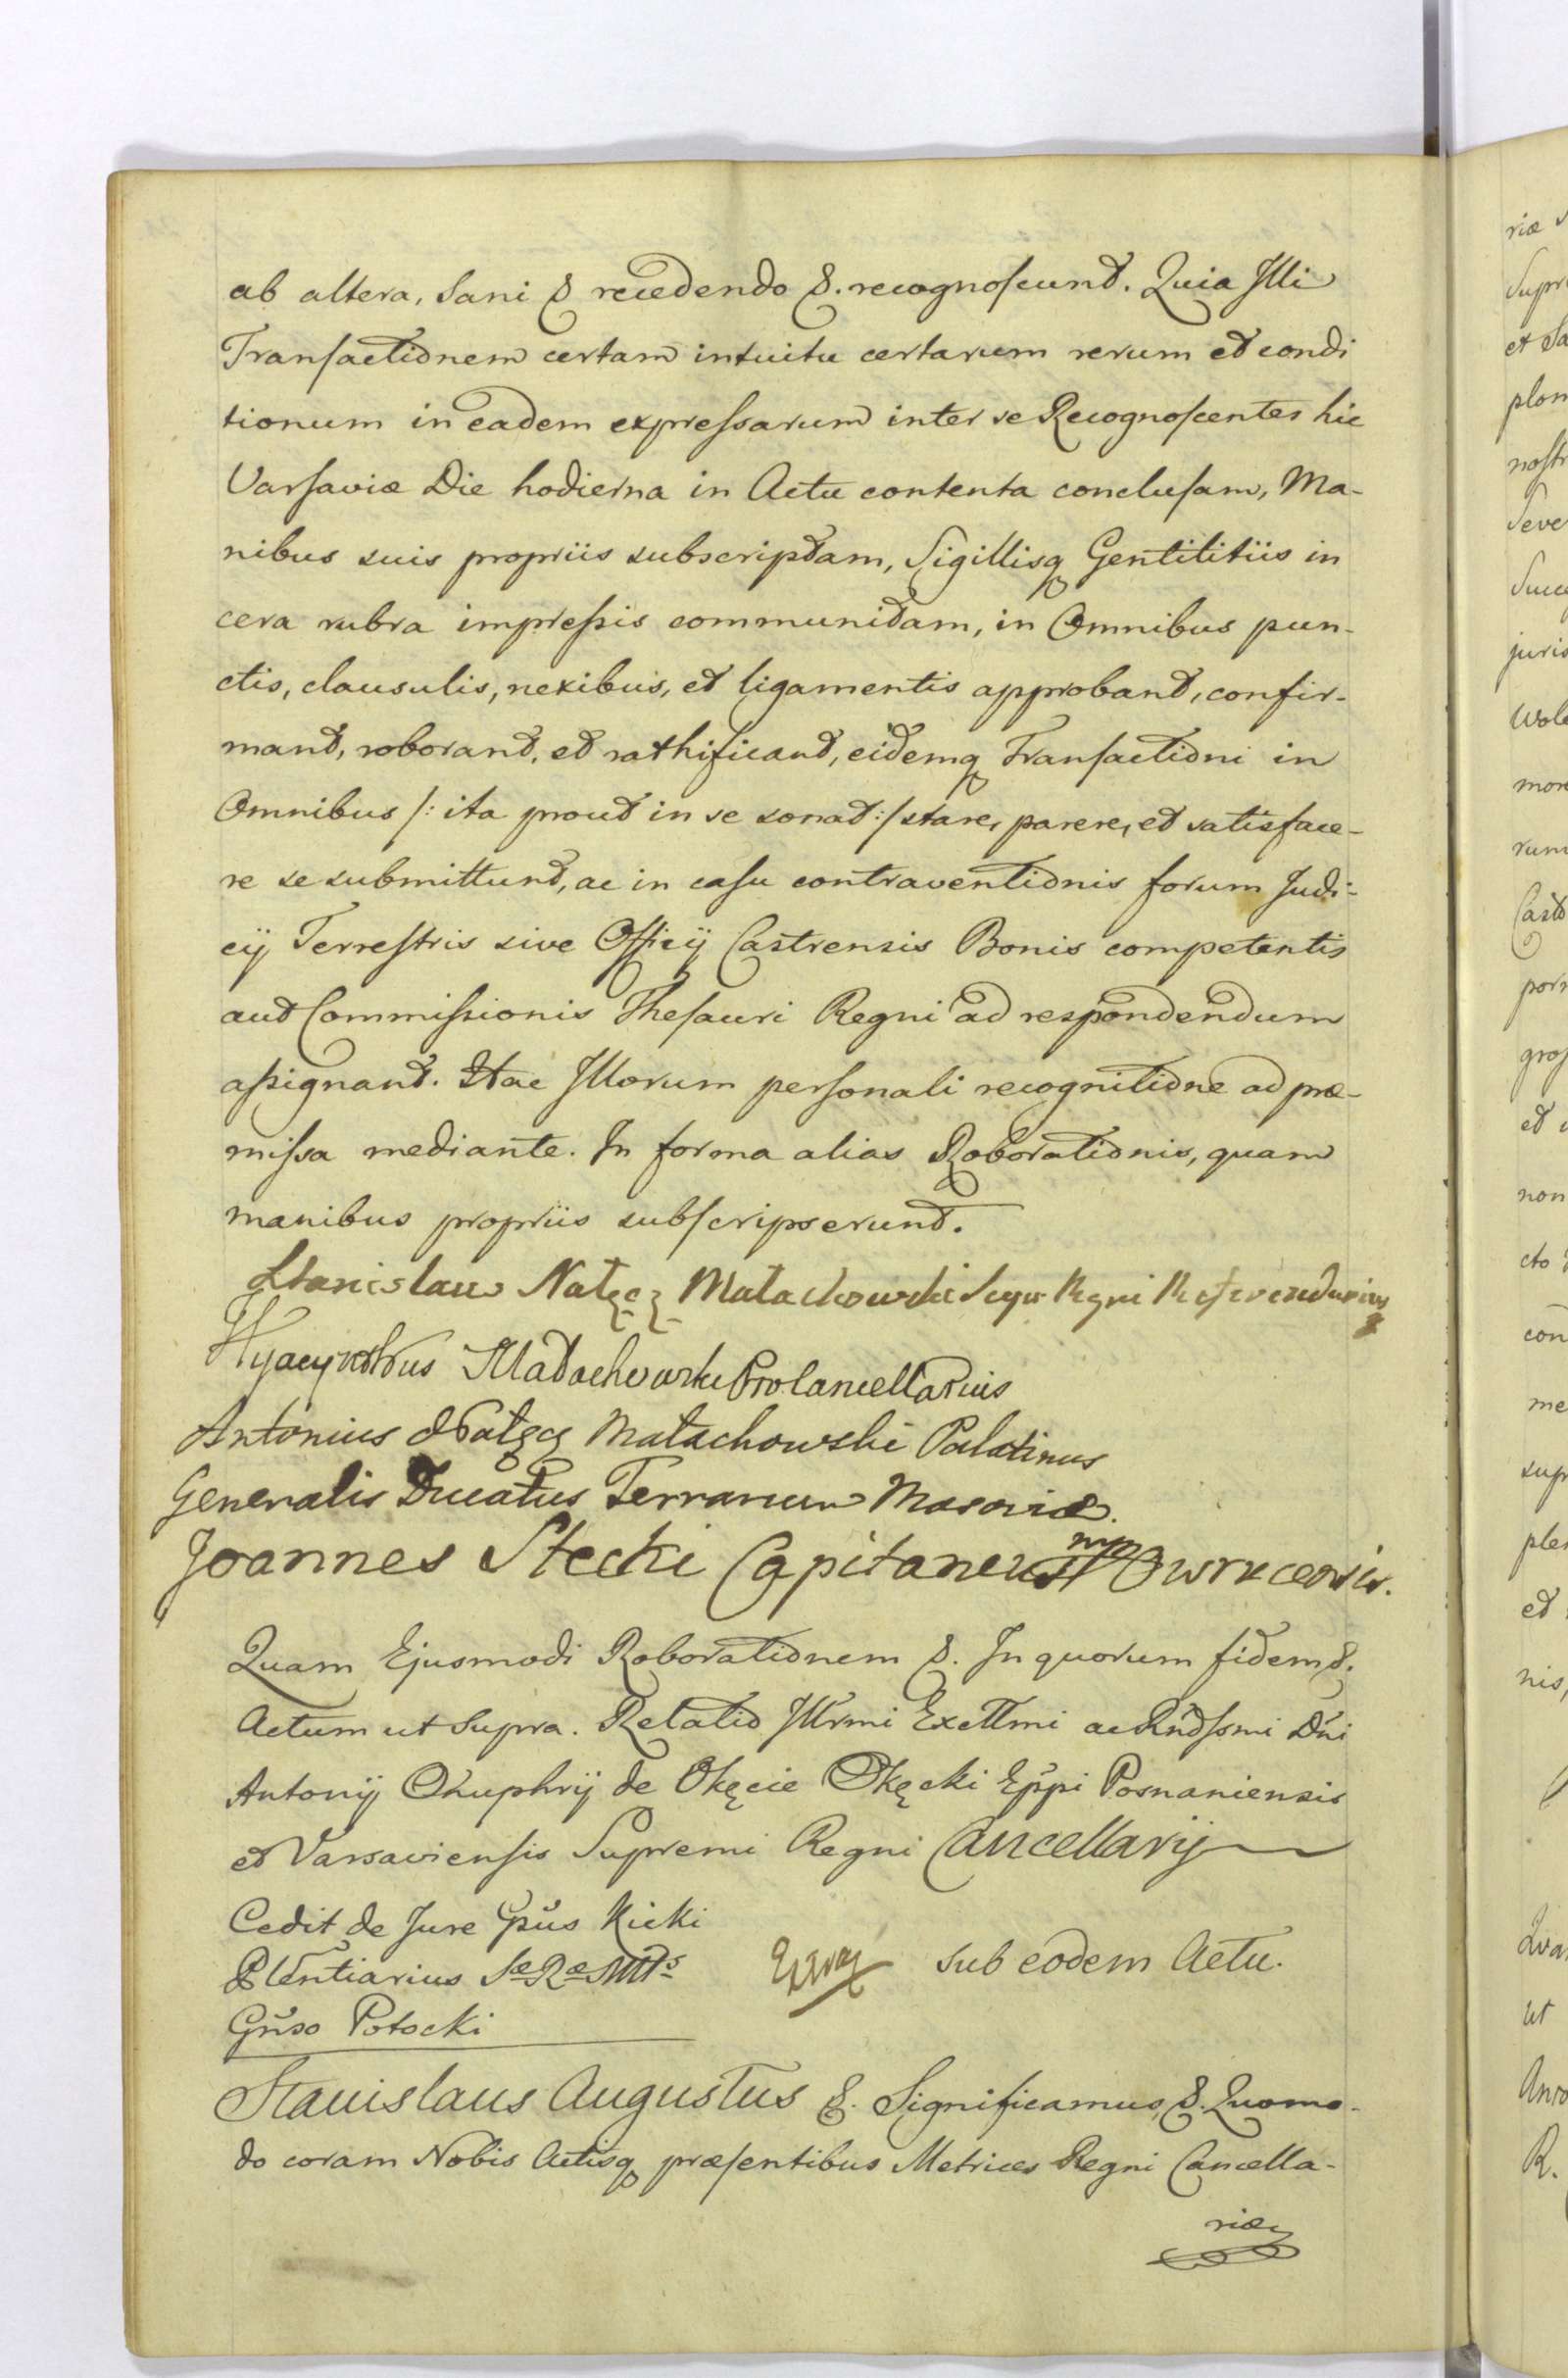 ab altera, Sani & recedendo &. recognoscunt. Quia Illi
Transactionem certam intuitu certarum rerum et condi
tionum in eadem expressarum inter se Recognoscentes hic
Varsaviæ Die hodierna in Actu contenta conclusam, Ma-
nibus suis propriis subscriptam, Sigillisq Gentilitiis in
cera rubra impressis communitam, in Omnibus pun-
ctis, clausulis, nexibus, et ligamentis approbant, confir-
mant, roborant, et rathificant, eidemq Transactioni in
Omnibus /: ita prout in se sonat :/ stare, parere, et satisface-
re se submittunt, ac in casu contraventionis forum Judi-
cij Terrestris sive Officij Castrensis Bonis competentis
aut Commissionis Thesauri Regni ad respondendum
assignant. Hac Illorum personali recognitione ad præ-
missa mediante. In forma alias Roborationis, quam
manibus propriis subscripserunt.
Stanislaus Nałęcz Małachowski Regni Referendarius
Hyacynthus Małachowski ProCancellarius
Antonius Nałęcz Małachowski Palatinus
Generalis Ducatus Terrarum Masoviæ.
Joannes Stecki Capitaneus Owrucensis. mp
Quam Ejusmodi Roborationem &. In quorum fidem &.
Actum ut Supra. Relatio Illrmi Exellmi ac Rndssmi Dni
Antonij Onuphrij de Okęcie Okęcki Eppi Posnaniensis
et Varsaviensis Supremi Regni Cancellarij
Cedit de Jure Gnus Kicki
Plentiarius Sæ Ræ Mtis
Gnso Potocki
sub eodem Actu.
Stanislaus Augustus &. Significamus &. Quomo-
do coram Nobis Actisq præsentibus Metrices Regni Cancella-
riæ